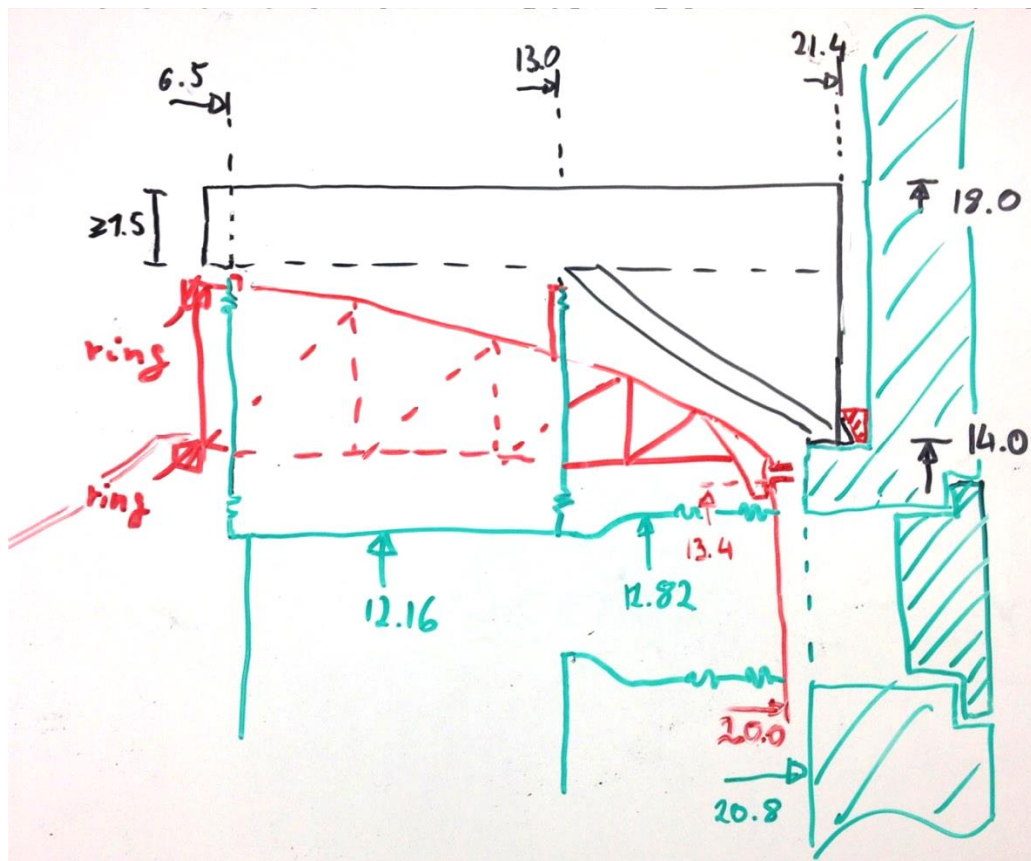 6.5
13.0
21.4
≥1.5
18.0
ring
14.0
ring
13.4
12.16
12.82
20.0
20.8